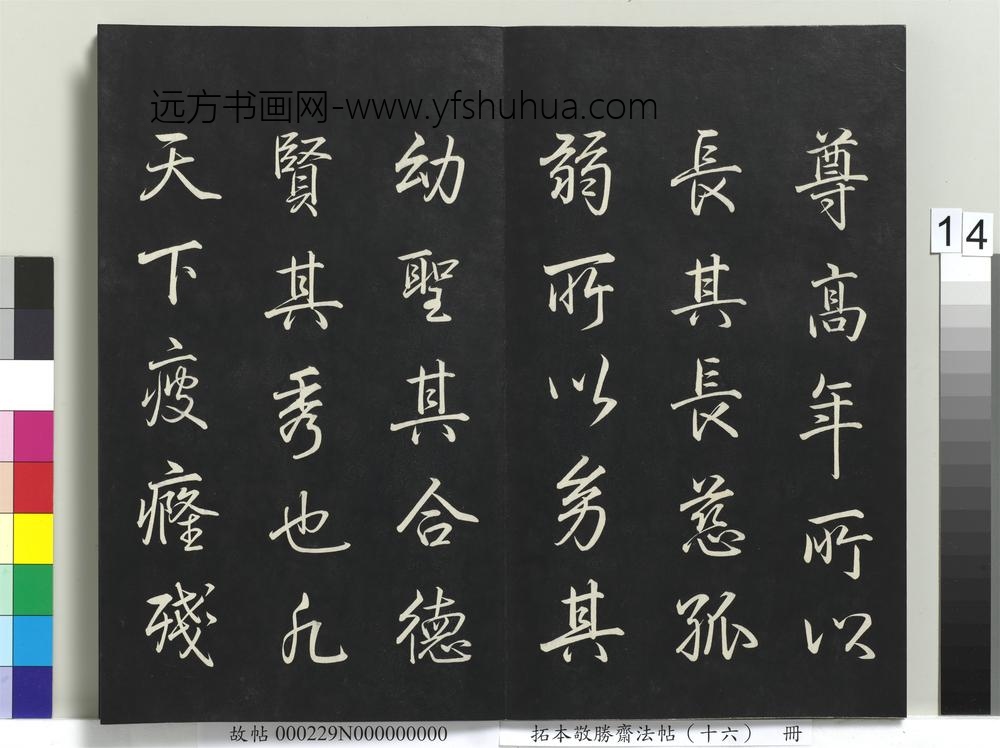 远方书画网-www.yfshuhua.com
尊高年所以
長其長慈孤
弱所以幼其
幼聖其合德
賢其秀也凡
天下疲癃殘
14
故帖 000229N000000000
拓本敬勝齋法帖（十六） 冊